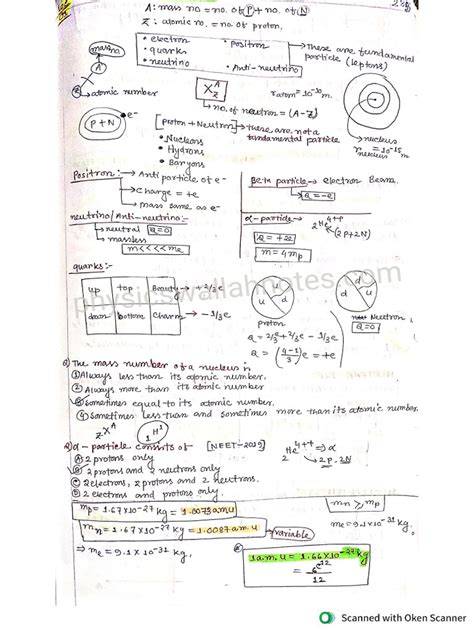 A: mass no = no. of P + no. of N
Z: atomic no. = no. of proton.
• electron
• quarks
• neutrino
• Positron
• Anti-neutrino
→ These are fundamental particle (leptons)
A
Z
→ atomic number
X A Z
→ no. of neutron = (A-Z)
r atom = 10⁻¹⁰ m
P + N
e⁻
[Proton + Neutron] → these are not a fundamental particle
• Nucleons
• Hydrons
• Baryons
nucleus
r nucleus = 10⁻¹⁵ m
Positron:- → Anti particle of e⁻
→ charge = +e
→ mass same as e⁻
Beta particle → electron Beam.
Q = -e
neutrino/Anti-neutrino:-
→ neutral Q=0
→ massless
m<<<<me
α-particle →
Q = +2e
m = 4mp
2He4++
(2P+2N)
quarks:-
up top Beauty → +2/3e
down bottom Charm → -1/3e
u u d
d u d
proton
Q = 2/3e + 2/3e - 1/3e
Q = (4-1/3)e = +e
Neutron
Q=0
physicswallahnotes.com
Q) The mass number of a nucleus is
① Always less than its atomic number.
② Always more than its atomic number
③ Sometimes equal to its atomic number.
④ Sometimes less than and sometimes more than its atomic number.
ZXA
1H1
Q) α-particle consists of - [NEET-2019]
2He4++ ⇒ α
→ 2P, 2N
A 2 protons only
B 2 protons and 2 neutrons only
C 2 electrons, 2 protons and 2 neutrons.
D 2 electrons and protons only.
mp = 1.67×10⁻²⁷ kg = 1.0073 a.m.u
mn = 1.67×10⁻²⁷ kg = 1.0087 a.m.u
→ variable
mn ≥ mp
me = 9.1×10⁻³¹ kg
⇒ me = 9.1×10⁻³¹ kg.
1 a.m.u = 1.66×10⁻²⁷ kg
= 6C12/12
Scanned with Oken Scanner